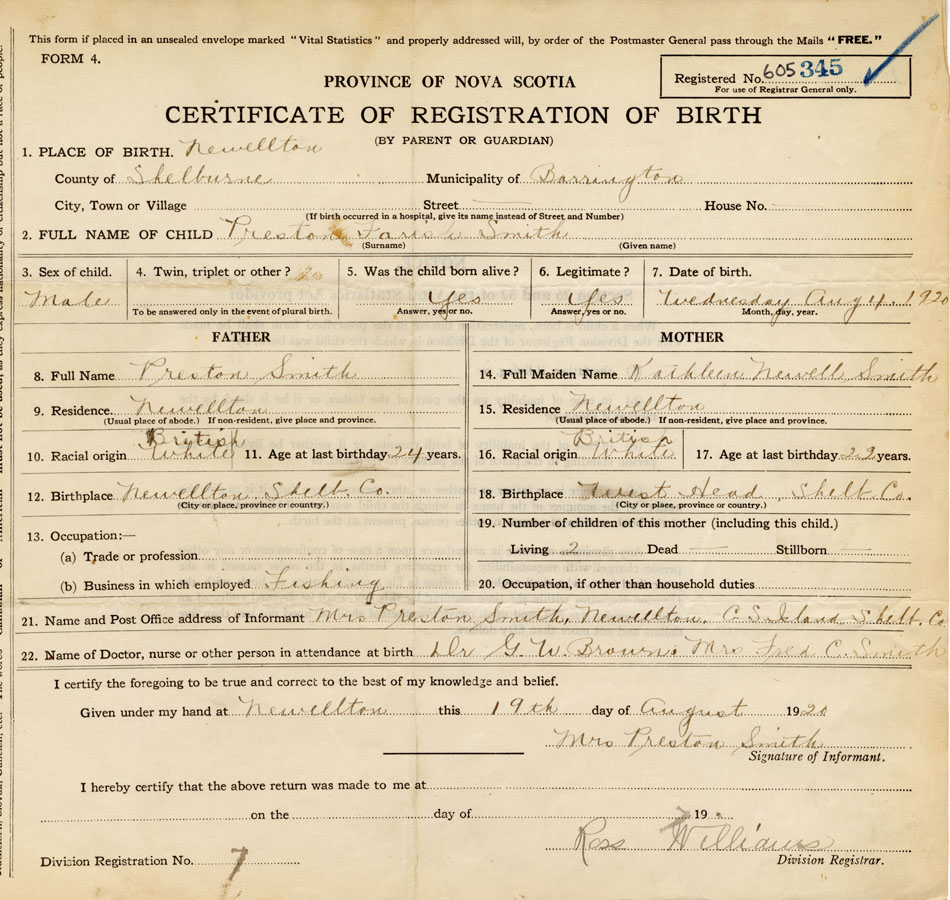 This form if placed in an unsealed envelope marked "Vital Statistics" and properly addressed will, by order of the Postmaster General pass through the Mails "FREE."
FORM 4.
Registered No. 605 345
For use of Registrar General only.
PROVINCE OF NOVA SCOTIA
CERTIFICATE OF REGISTRATION OF BIRTH
(BY PARENT OR GUARDIAN)
1. PLACE OF BIRTH. Newellton
County of Shelburne Municipality of Barrington
City, Town or Village Street House No.
(If birth occurred in a hospital, give its name instead of Street and Number)
2. FULL NAME OF CHILD Preston Farish Smith
(Surname) (Given name)
3. Sex of child. 4. Twin, triplet or other? 5. Was the child born alive? 6. Legitimate? 7. Date of birth.
Male Yes Yes Wednesday Aug 4. 1920
To be answered only in the event of plural birth. Answer, yes or no. Answer, yes or no. Month, day, year.
FATHER MOTHER
8. Full Name Preston Smith 14. Full Maiden Name Kathleen Newell Smith
9. Residence. Newellton 15. Residence Newellton
(Usual place of abode.) If non-resident, give place and province. (Usual place of abode.) If non-resident, give place and province.
British British
10. Racial origin White 11. Age at last birthday 24 years. 16. Racial origin White 17. Age at last birthday 22 years.
12. Birthplace Newellton, Shelb. Co. 18. Birthplace West Head, Shelb Co.
(City or place, province or country.) (City or place, province or country.)
13. Occupation:— 19. Number of children of this mother (including this child.)
(a) Trade or profession Living 2 Dead — Stillborn —
(b) Business in which employed Fishing 20. Occupation, if other than household duties
21. Name and Post Office address of Informant Mrs Preston Smith, Newellton. C. S. Island Shelb. Co.
22. Name of Doctor, nurse or other person in attendance at birth Dr G. W. Brown Mrs Fred C. Smith
I certify the foregoing to be true and correct to the best of my knowledge and belief.
Given under my hand at Newellton this 19th day of August 1920
Mrs Preston Smith
Signature of Informant.
I hereby certify that the above return was made to me at
on the day of 19
Ross Williams
Division Registration No. 7 Division Registrar.